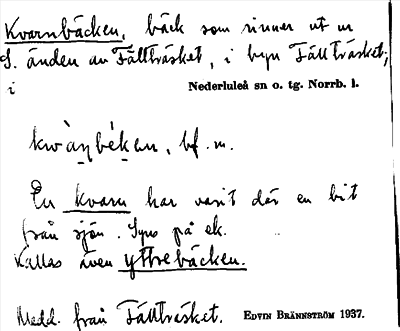 Kvarnbäcken, bäck som rinner ut ur
S. änden av Fällträsket, i byn Fällträsket,
i Nederluleå sn o. tg. Norrb. l.
bf. m.
En kvarn har varit där en bit
från sjön. Syns på ek.
Kallas även yttrebäcken.
Medd. från Fällträsket. EDVIN BRÄNNSTRÖM 1937.